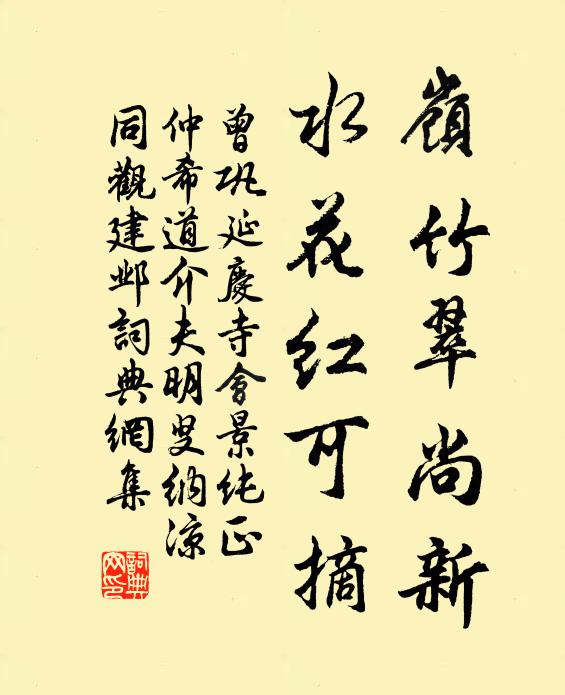 嶺竹翠尚新
水花紅可摘
曾巩延慶寺會景純正
仲希道介夫明叟納涼
同觀建邺詞典網集
詞典网印